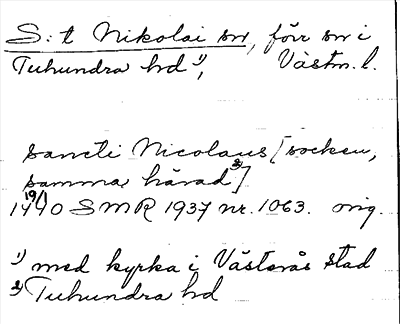 S:t Nikolai sn, förr sn i
Tuhundra hd ¹⁾, Västm. l.
sancti Nicolaus [socken,
samma härad ²⁾]
19/1
1440 SMR 1937 nr. 1063. orig.
¹⁾ med kyrka i Västerås stad
²⁾ Tuhundra hd